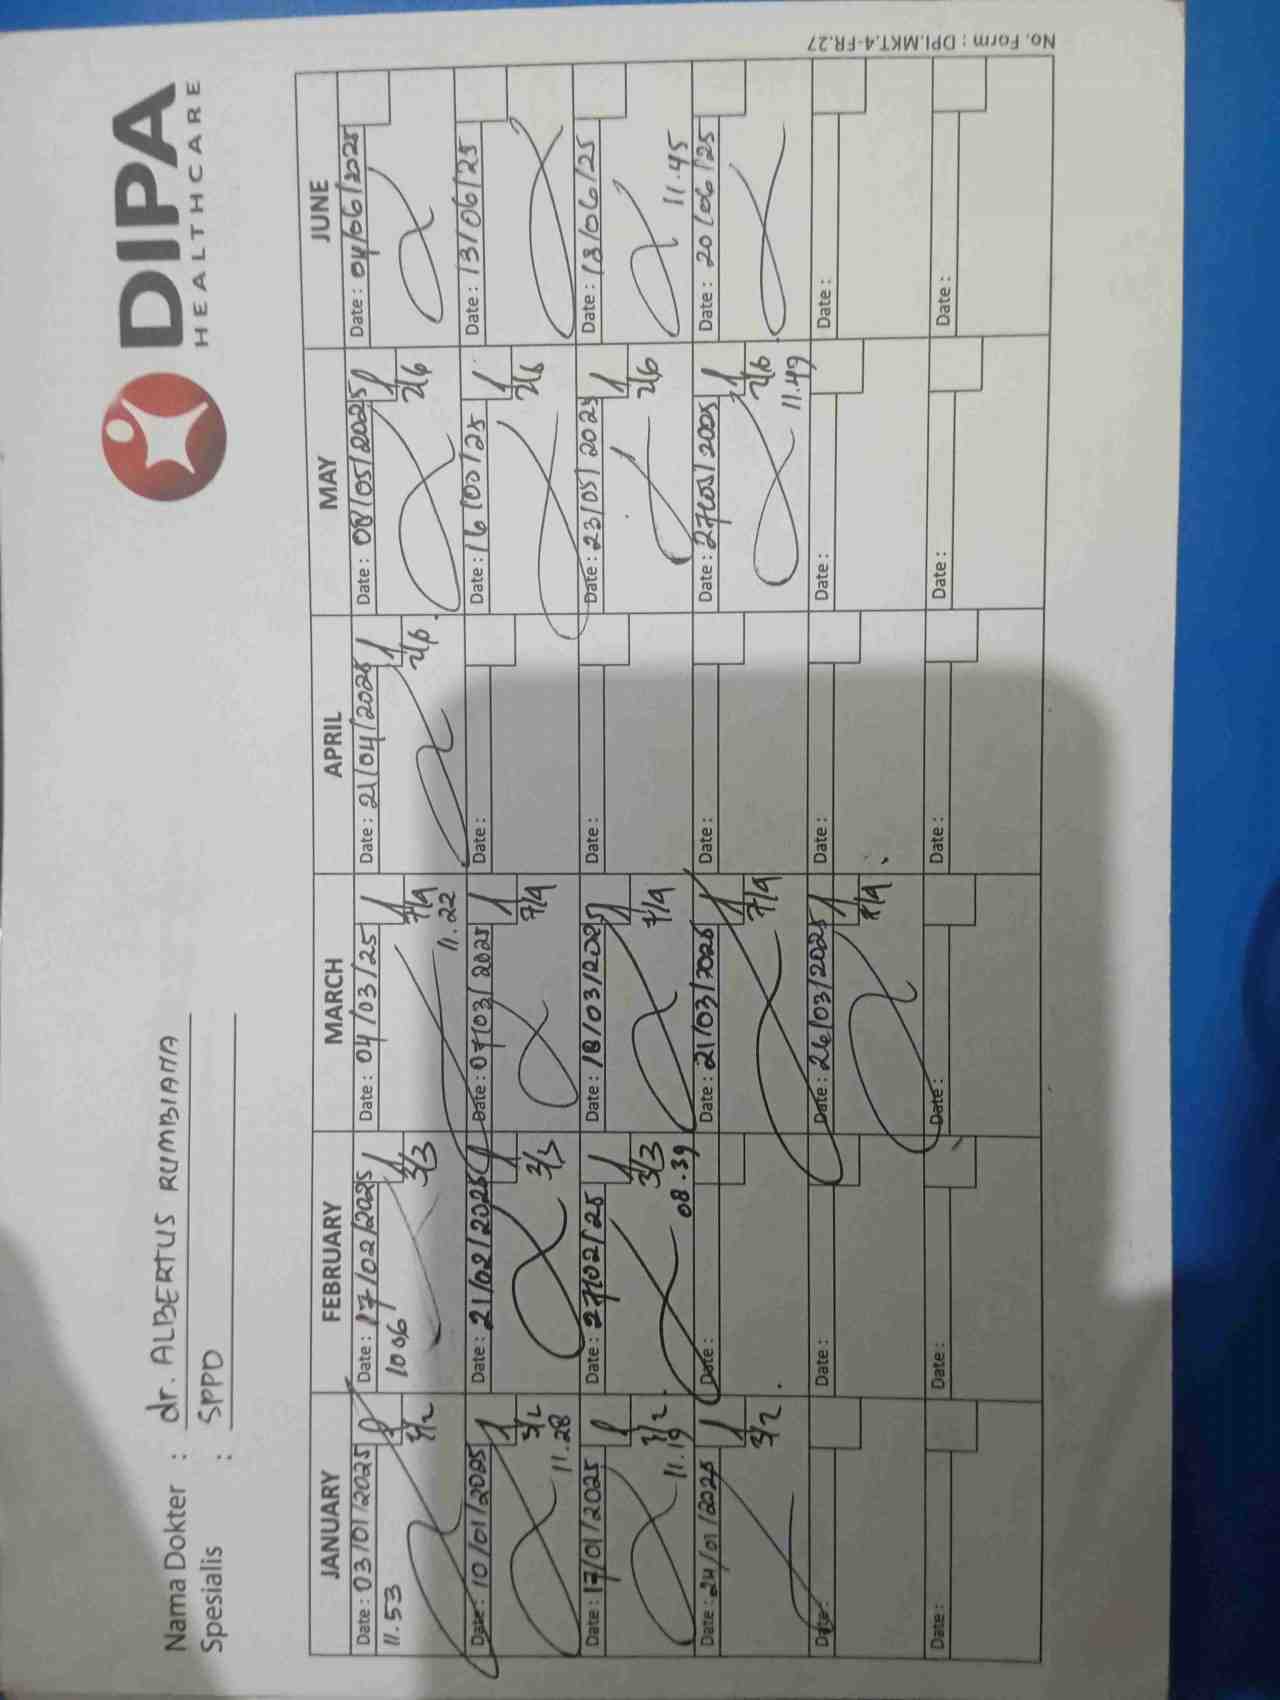 DIPA
HEALTHCARE
Nama Dokter : dr. ALBERTUS RUMBIANA
Spesialis : SPPD
JANUARY FEBRUARY MARCH APRIL MAY JUNE
Date : 03/01/2025 Date : 17/02/2025 Date : 04/03/25 Date : 21/04/2025 Date : 08/05/2025 Date : 04/06/2025
11.53 3/2 1006 3/3 7/4 11.22 2/6 2/6
Date : 10/01/2025 Date : 21/02/2025 Date : 07/03/2025 Date : Date : 16/00/25 Date : 13/06/25
3/2 11.28 3/3 7/4 2/6
Date : 17/01/2025 Date : 27/02/25 Date : 18/03/2025 Date : Date : 23/05/2025 Date : 18/06/25
3/2 11.19 3/3 08.39 7/4 2/6 11.45
Date : 24/01/2025 Date : Date : 21/03/2025 Date : Date : 27/05/2005 Date : 20/06/25
3/2 7/4 2/6 11.49
Date : Date : Date : 26/03/2025 Date : Date : Date :
7/4
Date : Date : Date : Date : Date : Date :
No. Form : DPI.MKT.4-FR.27